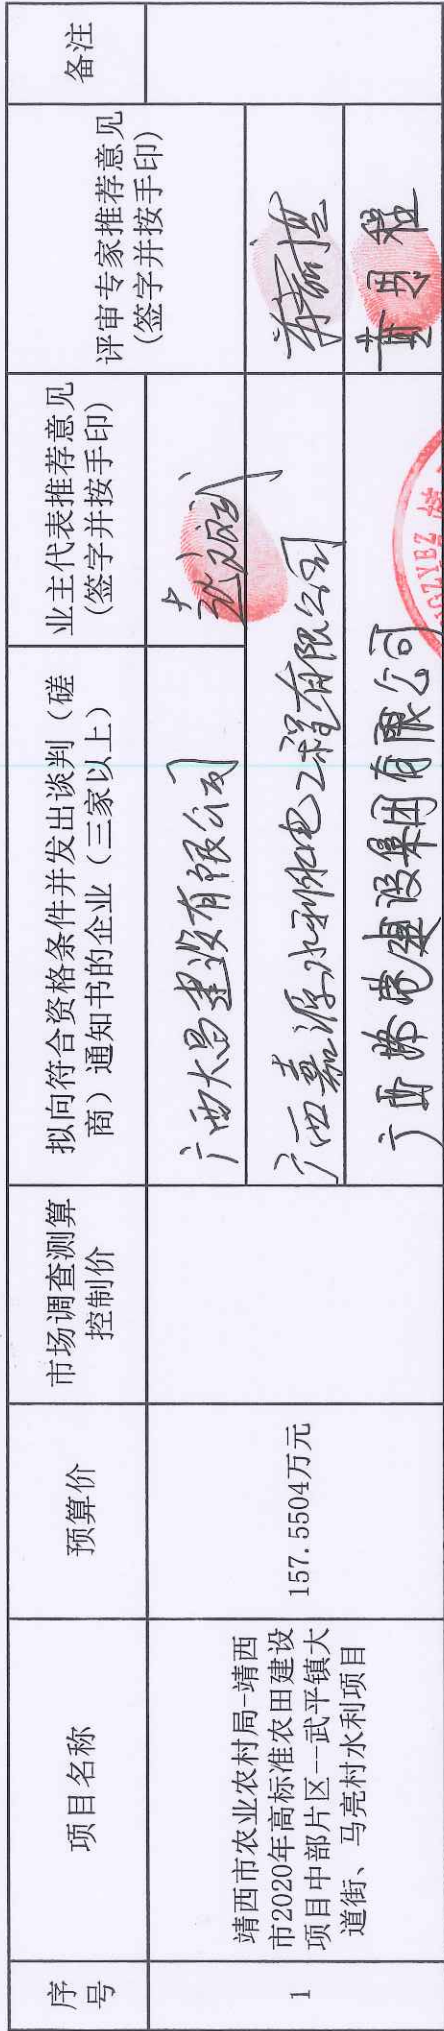 序
号
项目名称
预算价
市场调查测算
控制价
拟向符合资格条件并发出谈判（磋
商）通知书的企业（三家以上）
业主代表推荐意见
(签字并按手印)
评审专家推荐意见
(签字并按手印)
备注
1
靖西市农业农村局-靖西
市2020年高标准农田建设
项目中部片区--武平镇大
道街、马亮村水利项目
157.5504万元
广西大昌建设有限公司
广西嘉源水利水电工程有限公司
广西 建设集团有限公司